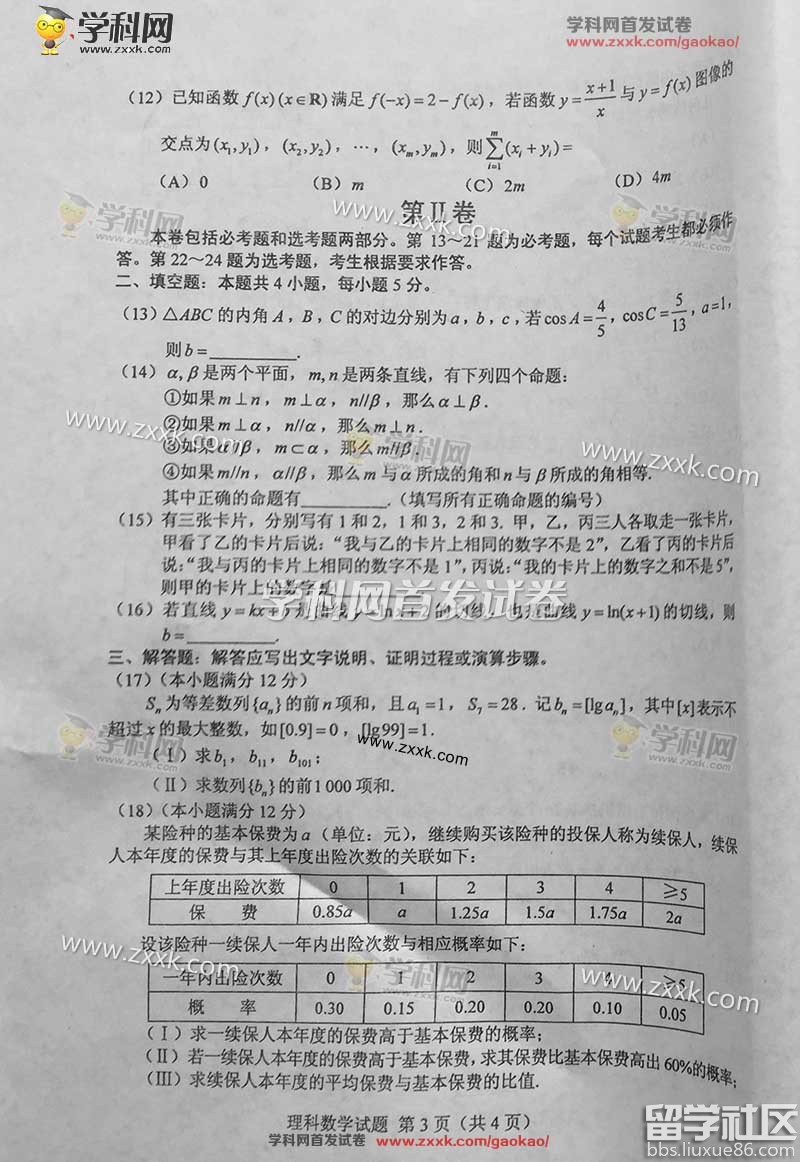 学科网
www.zxxk.com
学科网首发试卷
www.zxxk.com/gaokao/
(12) 已知函数 f(x)(x∈R) 满足 f(-x)=2-f(x), 若函数 y=(x+1)/x 与 y=f(x) 图像的
交点为 (x₁,y₁), (x₂,y₂), ⋯, (xₘ,yₘ), 则 ∑ᵢ₌₁ᵐ(xᵢ+yᵢ)=
(A) 0 (B) m (C) 2m (D) 4m
第Ⅱ卷
本卷包括必考题和选考题两部分。第 13~21 题为必考题,每个试题考生都必须作
答。第 22~24 题为选考题,考生根据要求作答。
二、填空题:本题共 4 小题,每小题 5 分。
(13) △ABC 的内角 A, B, C 的对边分别为 a, b, c, 若 cos A=4/5, cos C=5/13, a=1,
则 b=________.
(14) α,β 是两个平面, m,n 是两条直线,有下列四个命题:
①如果 m⊥n, m⊥α, n//β, 那么 α⊥β.
②如果 m⊥α, n//α, 那么 m⊥n.
③如果 α//β, m⊂α, 那么 m//β.
④如果 m//n, α//β, 那么 m 与 α 所成的角和 n 与 β 所成的角相等.
其中正确的命题有________.(填写所有正确命题的编号)
(15) 有三张卡片,分别写有 1 和 2, 1 和 3, 2 和 3. 甲,乙,丙三人各取走一张卡片,
甲看了乙的卡片后说:“我与乙的卡片上相同的数字不是 2”, 乙看了丙的卡片后
说:“我与丙的卡片上相同的数字不是 1”, 丙说:“我的卡片上的数字之和不是 5”,
则甲的卡片上的数字
学科网首发试卷
(16) 若直线 y=kx+ 线 y=ln x+2 的切线,也是曲线 y=ln(x+1) 的切线,则
b=________.
三、解答题:解答应写出文字说明、证明过程或演算步骤。
(17)(本小题满分 12 分)
Sₙ 为等差数列 {aₙ} 的前 n 项和,且 a₁=1, S₇=28. 记 bₙ=[lg aₙ], 其中 [x] 表示不
超过 x 的最大整数,如 [0.9]=0, [lg99]=1.
(Ⅰ)求 b₁, b₁₁, b₁₀₁;
(Ⅱ)求数列 {bₙ} 的前 1 000 项和.
(18)(本小题满分 12 分)
某险种的基本保费为 a(单位:元),继续购买该险种的投保人称为续保人,续保
人本年度的保费与其上年度出险次数的关联如下:
上年度出险次数 0 1 2 3 4 ≥5
保 费 0.85a a 1.25a 1.5a 1.75a 2a
设该险种一续保人一年内出险次数与相应概率如下:
一年内出险次数 0 1 2 3 4 ≥5
概 率 0.30 0.15 0.20 0.20 0.10 0.05
(Ⅰ)求一续保人本年度的保费高于基本保费的概率;
(Ⅱ)若一续保人本年度的保费高于基本保费,求其保费比基本保费高出 60% 的概率;
(Ⅲ)求续保人本年度的平均保费与基本保费的比值.
理科数学试题 第 3 页(共 4 页)
学科网首发试卷 www.zxxk.com/gaokao/
留学社区
bbs.liuxue86.com